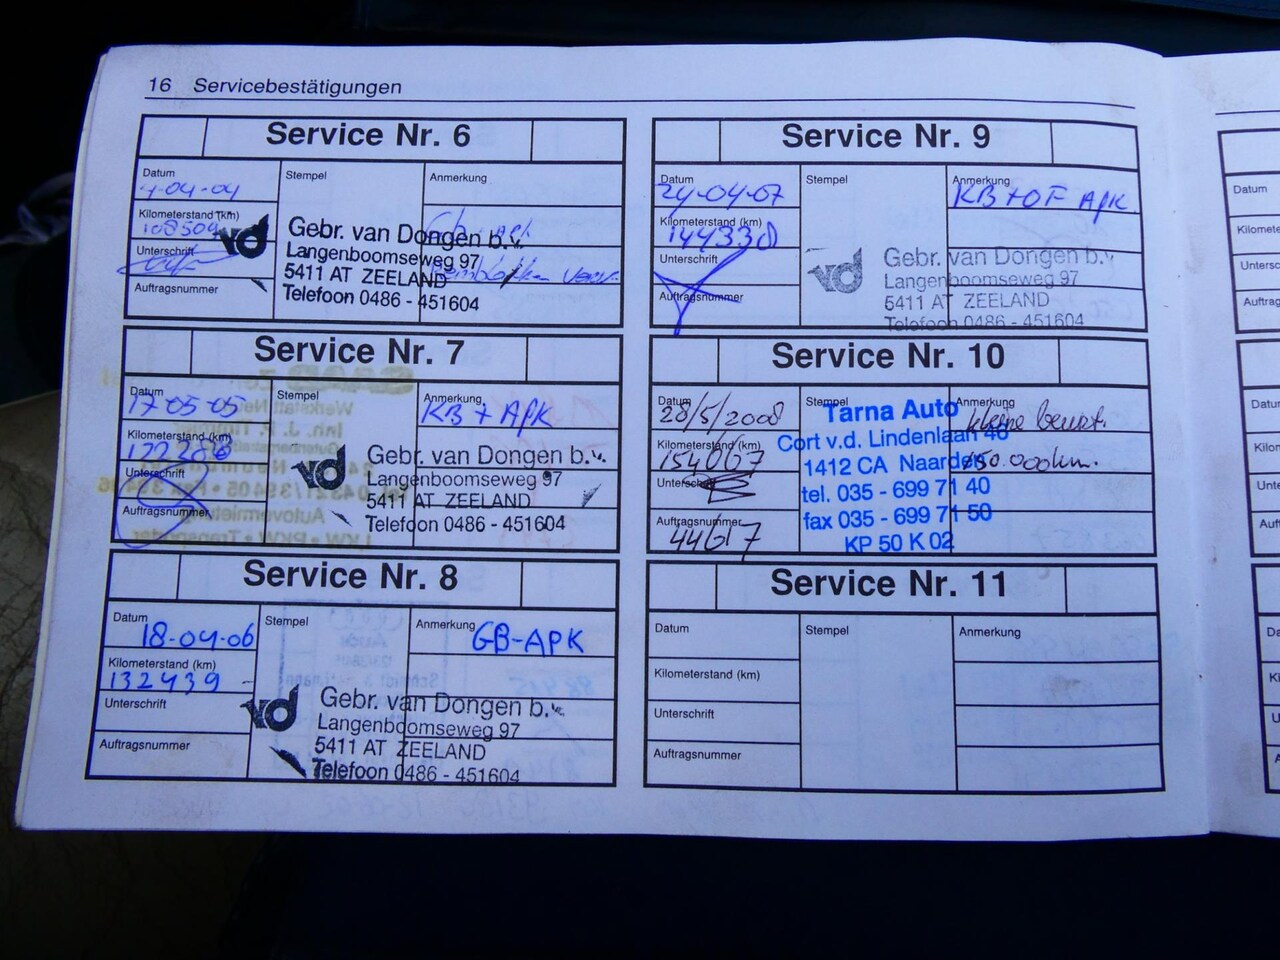 16 Servicebestätigungen
Service Nr. 6
Datum
-04-04
Kilometerstand (km)
108504
Unterschrift
Auftragsnummer
Stempel
vd
Gebr. van Dongen b.v.
Langenboomseweg 97
5411 AT ZEELAND
Telefoon 0486 - 451604
Anmerkung
Service Nr. 7
Datum
17-05-05
Kilometerstand (km)
Unterschrift
Auftragsnummer
Stempel
vd
Gebr. van Dongen b.v.
Langenboomseweg 97
5411 AT ZEELAND
Telefoon 0486 - 451604
Anmerkung
KB + APK
Service Nr. 8
Datum
18-04-06
Kilometerstand (km)
132439
Unterschrift
Auftragsnummer
Stempel
vd
Gebr. van Dongen b.v.
Langenboomseweg 97
5411 AT ZEELAND
Telefoon 0486 - 451604
Anmerkung
GB-APK
Service Nr. 9
Datum
24-04-07
Kilometerstand (km)
144338
Unterschrift
Auftragsnummer
Stempel
vd
Gebr. van Dongen b.v.
Langenboomseweg 97
5411 AT ZEELAND
Telefoon 0486 - 451604
Anmerkung
KB + OF APK
Service Nr. 10
Datum
28/5/2008
Kilometerstand (km)
154067
Unterschrift
Auftragsnummer
44617
Stempel
Tarna Auto
Cort v.d. Lindenlaan 46
1412 CA Naarden
tel. 035 - 699 71 40
fax 035 - 699 71 50
KP 50 K 02
Anmerkung
kleine beurt.
150.000km.
Service Nr. 11
Datum
Kilometerstand (km)
Unterschrift
Auftragsnummer
Stempel
Anmerkung
Datum